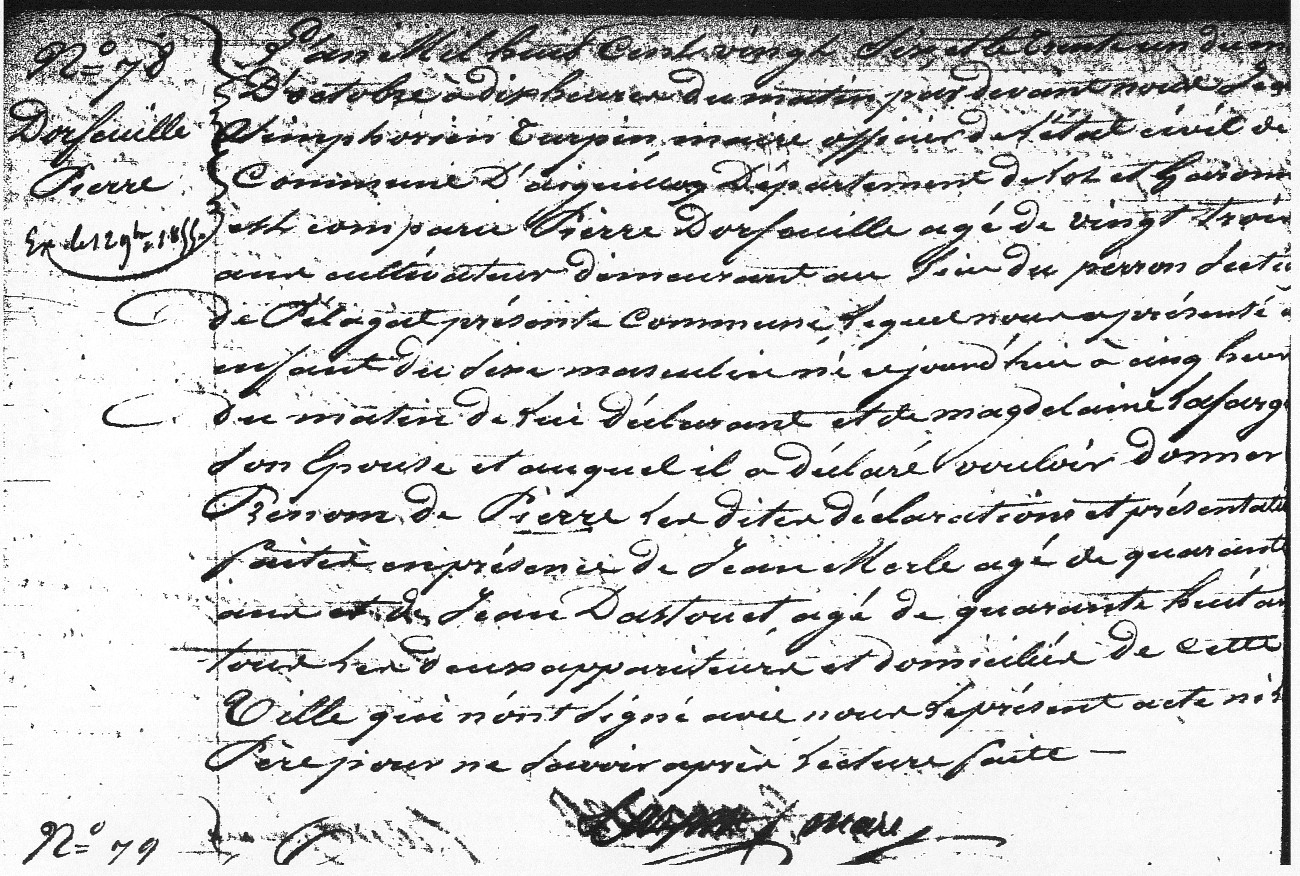 N° 78
Dorfeuille
Pierre
Ex. le 12 9bre 1855.
L'an Mil huit Cent vingt Six et le trente un du m
D'octobre à dix heures du matin par devant nous
Simphorien Turpin maire officier de l'état civil de
Commune D'aiguillon Département de Lot et Garonn
est comparu Pierre Dorfeuille agé de vingt trois
ans cultivateur demeurant au lieu du perron Secti
de Pélagat présente Commune, Lequel nous a présenté
enfant du Sexe masculin né cejourd'hui à cinq heur
du matin de Lui déclarant et de magdelaine Lafarg
Son Epouse et auquel il a déclaré vouloir donner
Prénom de Pierre Les dites déclarations et présentati
faites en présence de Jean Merle agé de quarante
ans et de Jean Dastouet, agé de quarante huit an
tous Les deux appariteurs et domiciliés de cette
Ville qui n'ont Signé avec nous Le présent acte ni L
Père pour ne Savoir après Lecture faite —
Turpin maire
N° 79